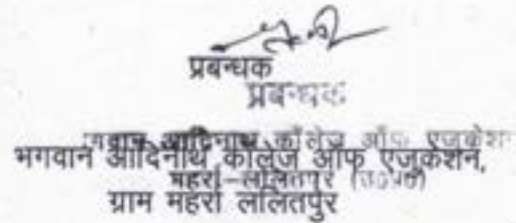 प्रबन्धक
प्रबन्धक
भगवान आदिनाथ कॉलेज ऑफ एजुकेशन
भगवान आदिनाथ कॉलेज ऑफ एजुकेशन,
महर्रा-ललितपुर (उ०प्र०)
ग्राम महर्रा ललितपुर